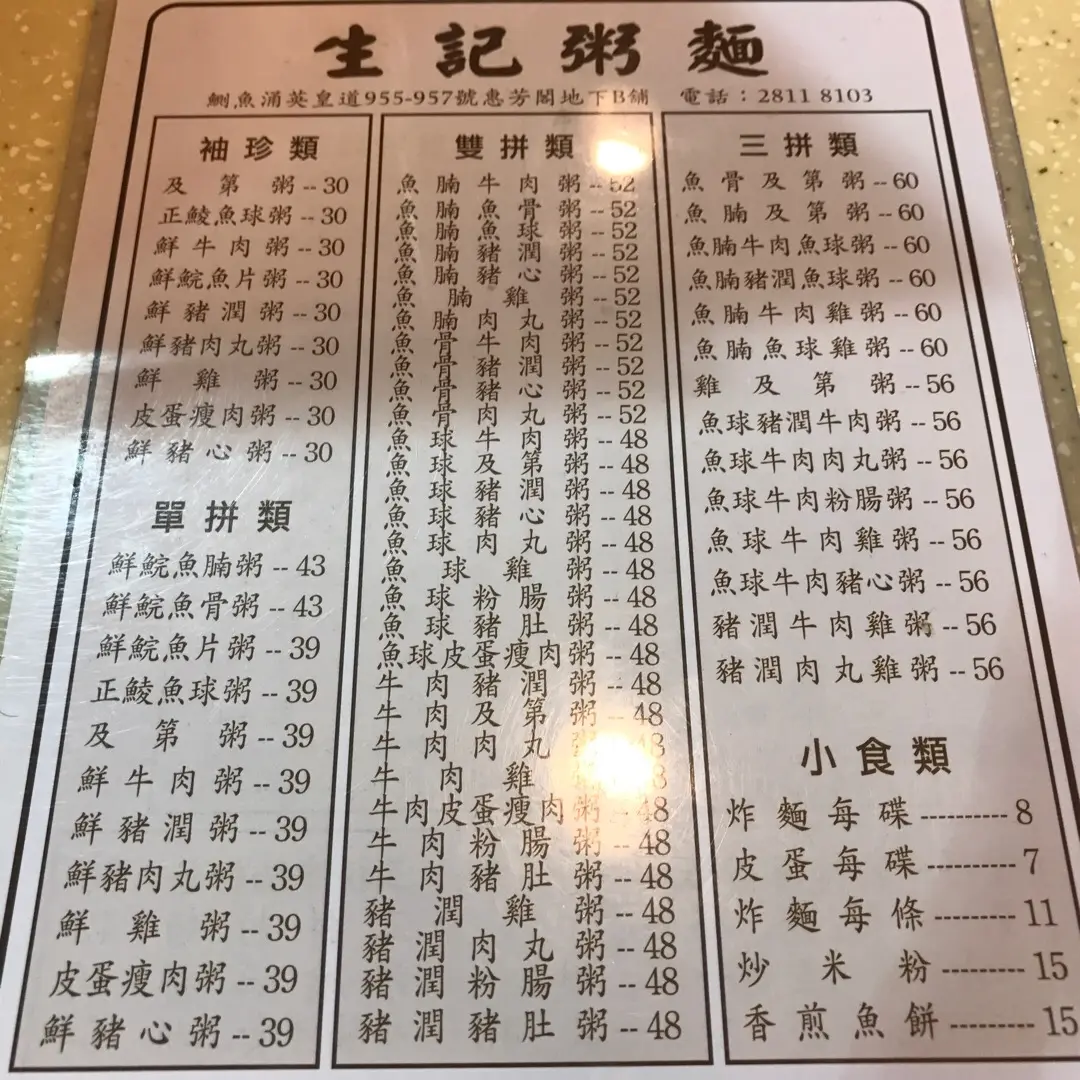 生記粥麵
鰂魚涌英皇道955-957號惠芳閣地下B舖 電話：2811 8103
袖珍類
及第粥--30
正鯪魚球粥--30
鮮牛肉粥--30
鮮鯇魚片粥--30
鮮豬潤粥--30
鮮豬肉丸粥--30
鮮雞粥--30
皮蛋瘦肉粥--30
鮮豬心粥--30
單拼類
鮮鯇魚腩粥--43
鮮鯇魚骨粥--43
鮮鯇魚片粥--39
正鯪魚球粥--39
及第粥--39
鮮牛肉粥--39
鮮豬潤粥--39
鮮豬肉丸粥--39
鮮雞粥--39
皮蛋瘦肉粥--39
鮮豬心粥--39
雙拼類
魚腩牛肉粥--52
魚腩魚骨粥--52
魚腩魚球粥--52
魚腩豬潤粥--52
魚腩豬心粥--52
魚腩雞粥--52
魚腩肉丸粥--52
魚骨牛肉粥--52
魚骨豬潤粥--52
魚骨豬心粥--52
魚骨肉丸粥--52
魚球牛肉粥--48
魚球及第粥--48
魚球豬潤粥--48
魚球豬心粥--48
魚球肉丸粥--48
魚球雞粥--48
魚球粉腸粥--48
魚球豬肚粥--48
魚球皮蛋瘦肉粥--48
牛肉豬潤粥--48
牛肉及第粥--48
牛肉肉丸粥
牛肉雞
牛肉皮蛋瘦肉粥--48
牛肉粉腸粥--48
牛肉豬肚粥--48
豬潤雞粥--48
豬潤肉丸粥--48
豬潤粉腸粥--48
豬潤豬肚粥--48
三拼類
魚骨及第粥--60
魚腩及第粥--60
魚腩牛肉魚球粥--60
魚腩豬潤魚球粥--60
魚腩牛肉雞粥--60
魚腩魚球雞粥--60
雞及第粥--56
魚球豬潤牛肉粥--56
魚球牛肉肉丸粥--56
魚球牛肉粉腸粥--56
魚球牛肉雞粥--56
魚球牛肉豬心粥--56
豬潤牛肉雞粥--56
豬潤肉丸雞粥--56
小食類
炸麵每碟----------8
皮蛋每碟----------7
炸麵每條---------11
炒米粉---------15
香煎魚餅---------15